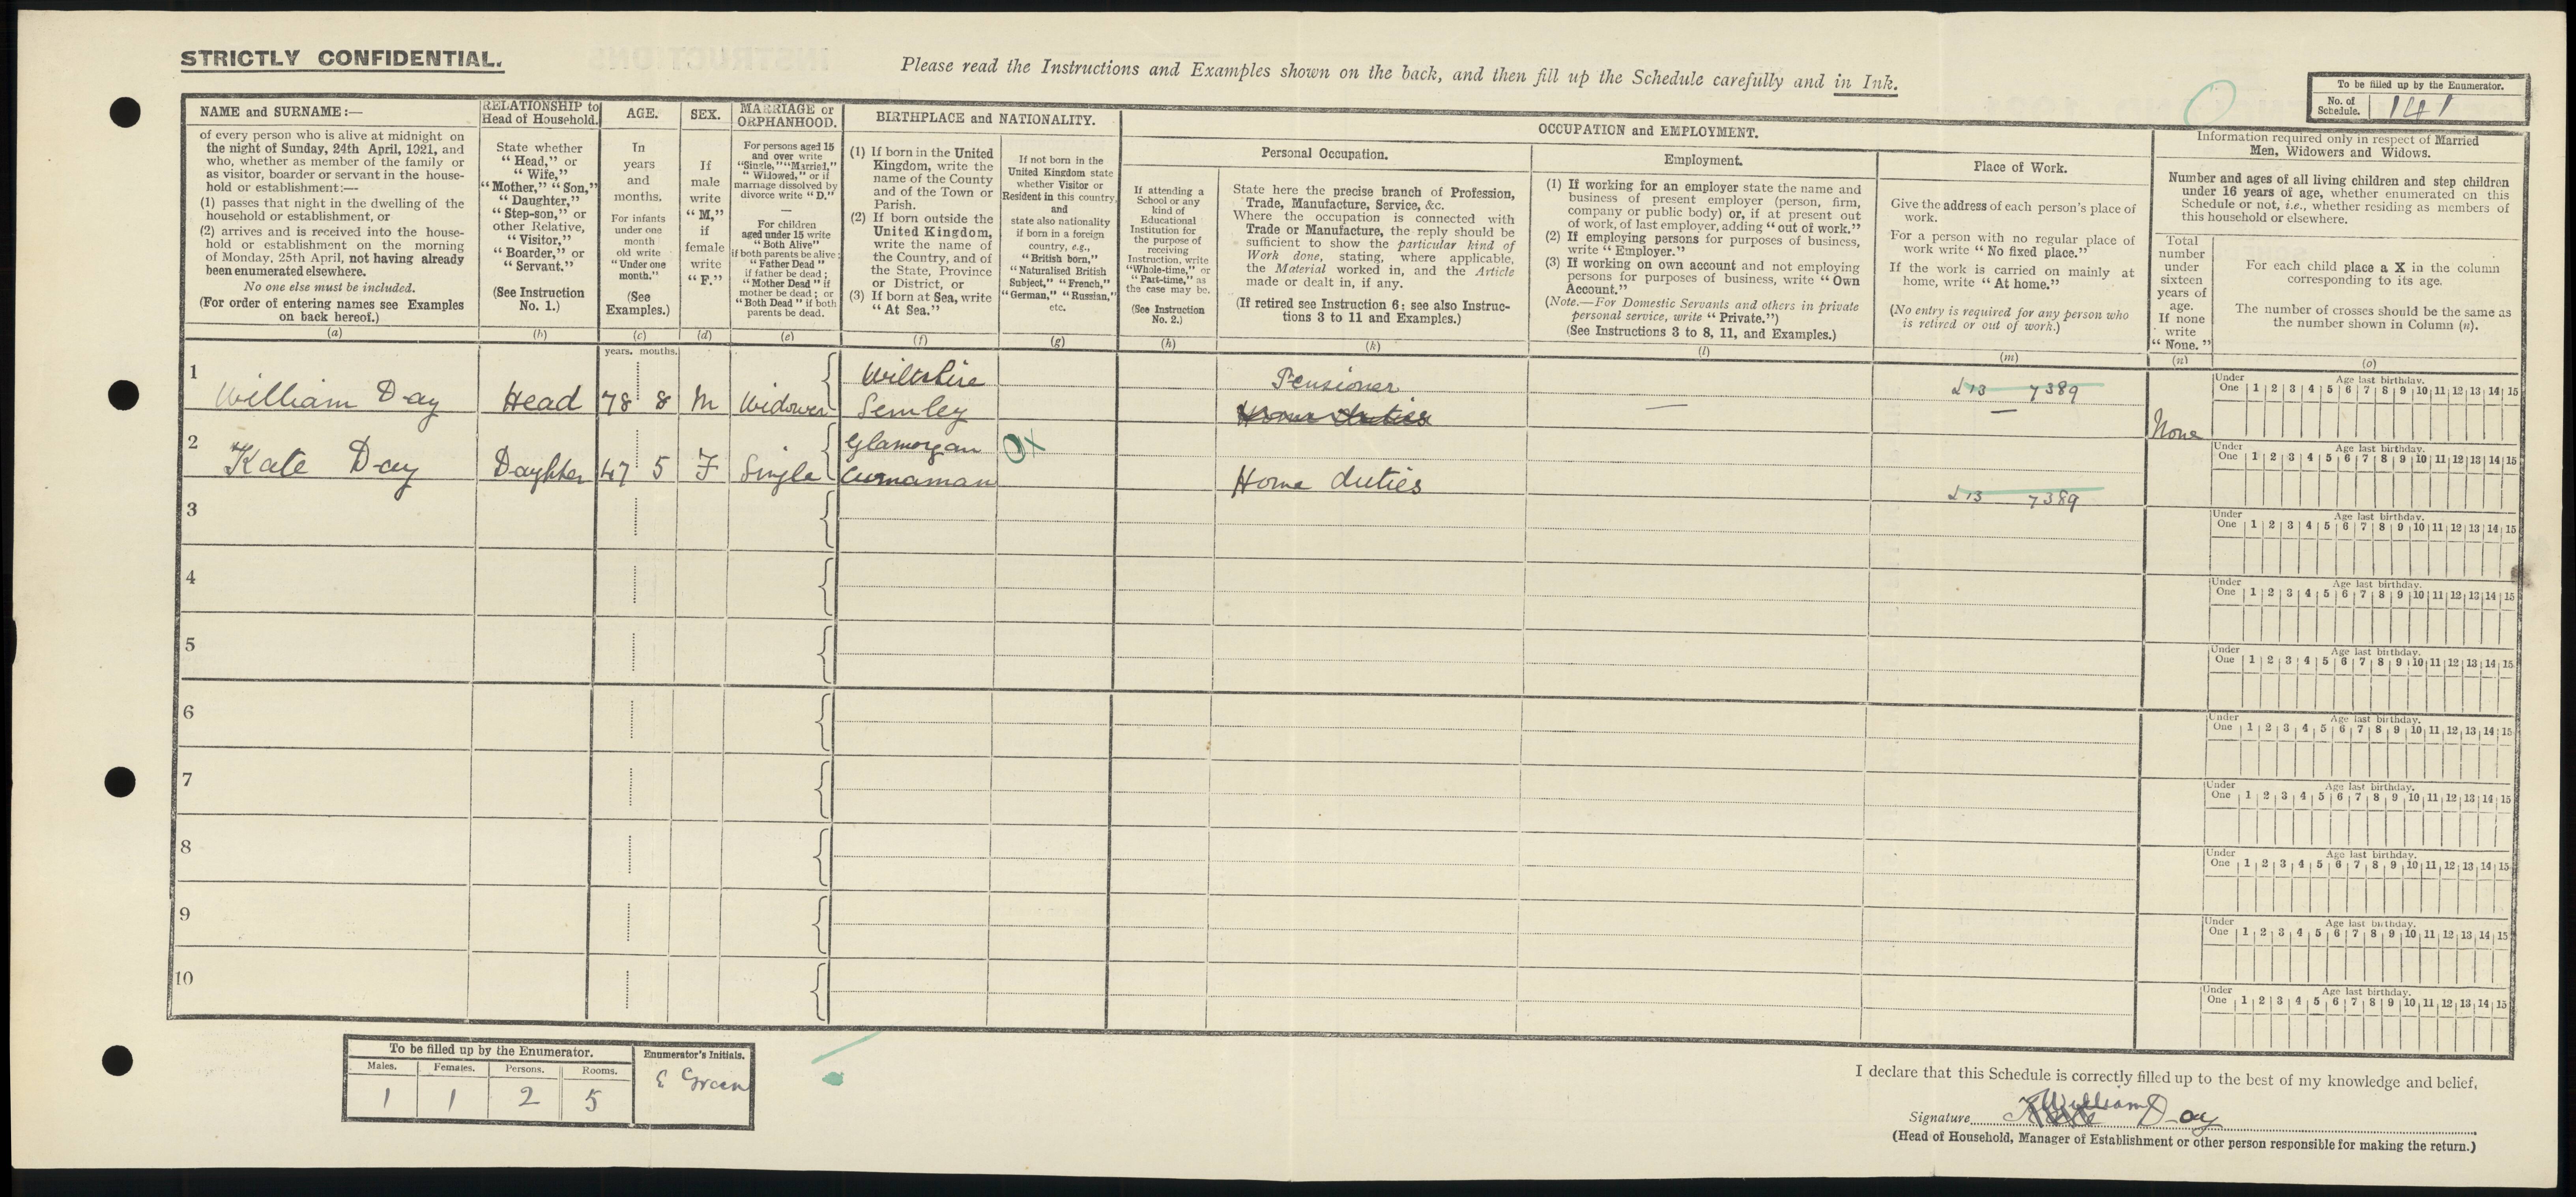 STRICTLY CONFIDENTIAL.
Please read the Instructions and Examples shown on the back, and then fill up the Schedule carefully and in Ink.
To be filled up by the Enumerator.
No. of Schedule. 141
NAME and SURNAME:—
of every person who is alive at midnight on
the night of Sunday, 24th April, 1921, and
who, whether as member of the family or
as visitor, boarder or servant in the house-
hold or establishment:—
(1) passes that night in the dwelling of the
household or establishment, or
(2) arrives and is received into the house-
hold or establishment on the morning
of Monday, 25th April, not having already
been enumerated elsewhere.
No one else must be included.
(For order of entering names see Examples
on back hereof.)
(a)
RELATIONSHIP to
Head of Household.
State whether
"Head," or
"Wife,"
"Mother," "Son,"
"Daughter,"
"Step-son," or
other Relative,
"Visitor,"
"Boarder," or
"Servant."
(See Instruction
No. 1.)
(b)
AGE.
In
years
and
months.
For infants
under one
month
old write
"Under one
month."
(See
Examples.)
(c)
SEX.
If
male
write
"M,"
if
female
write
"F."
(d)
MARRIAGE or
ORPHANHOOD.
For persons aged 15
and over write
"Single," "Married,"
"Widowed," or if
marriage dissolved by
divorce write "D."
—
For children
aged under 15 write
"Both Alive"
if both parents be alive;
"Father Dead"
if father be dead;
"Mother Dead" if
mother be dead; or
"Both Dead" if both
parents be dead.
(e)
BIRTHPLACE and NATIONALITY.
(1) If born in the United
Kingdom, write the
name of the County
and of the Town or
Parish.
(2) If born outside the
United Kingdom,
write the name of
the Country, and of
the State, Province
or District, or
(3) If born at Sea, write
"At Sea."
(f)
If not born in the
United Kingdom state
whether Visitor or
Resident in this country,
and
state also nationality
if born in a foreign
country, e.g.,
"British born,"
"Naturalised British
Subject," "French,"
"German," "Russian,"
etc.
(g)
OCCUPATION and EMPLOYMENT.
Personal Occupation.
If attending a
School or any
kind of
Educational
Institution for
the purpose of
receiving
Instruction, write
"Whole-time," or
"Part-time," as
the case may be.
(See Instruction
No. 2.)
(h)
State here the precise branch of Profession,
Trade, Manufacture, Service, &c.
Where the occupation is connected with
Trade or Manufacture, the reply should be
sufficient to show the particular kind of
Work done, stating, where applicable,
the Material worked in, and the Article
made or dealt in, if any.
(If retired see Instruction 6; see also Instruc-
tions 3 to 11 and Examples.)
(k)
Employment.
(1) If working for an employer state the name and
business of present employer (person, firm,
company or public body) or, if at present out
of work, of last employer, adding "out of work."
(2) If employing persons for purposes of business,
write "Employer."
(3) If working on own account and not employing
persons for purposes of business, write "Own
Account."
(Note.—For Domestic Servants and others in private
personal service, write "Private.")
(See Instructions 3 to 8, 11, and Examples.)
(l)
Place of Work.
Give the address of each person's place of
work.
For a person with no regular place of
work write "No fixed place."
If the work is carried on mainly at
home, write "At home."
(No entry is required for any person who
is retired or out of work.)
(m)
Information required only in respect of Married
Men, Widowers and Widows.
Number and ages of all living children and step children
under 16 years of age, whether enumerated on this
Schedule or not, i.e., whether residing as members of
this household or elsewhere.
Total
number
under
sixteen
years of
age.
If none
write
"None."
(n)
For each child place a X in the column
corresponding to its age.
The number of crosses should be the same as
the number shown in Column (n).
(o)
years. months.
1 William Day Head 78 8 M Widower Wiltshire Semley Pensioner Home duties — — 213 7389 None
Under One Age last birthday. 1 2 3 4 5 6 7 8 9 10 11 12 13 14 15
2 Kate Day Daughter 47 5 F Single Glamorgan Cwmaman OX Home duties 213 7389
Under One Age last birthday. 1 2 3 4 5 6 7 8 9 10 11 12 13 14 15
3
Under One Age last birthday. 1 2 3 4 5 6 7 8 9 10 11 12 13 14 15
4
Under One Age last birthday. 1 2 3 4 5 6 7 8 9 10 11 12 13 14 15
5
Under One Age last birthday. 1 2 3 4 5 6 7 8 9 10 11 12 13 14 15
6
Under One Age last birthday. 1 2 3 4 5 6 7 8 9 10 11 12 13 14 15
7
Under One Age last birthday. 1 2 3 4 5 6 7 8 9 10 11 12 13 14 15
8
Under One Age last birthday. 1 2 3 4 5 6 7 8 9 10 11 12 13 14 15
9
Under One Age last birthday. 1 2 3 4 5 6 7 8 9 10 11 12 13 14 15
10
Under One Age last birthday. 1 2 3 4 5 6 7 8 9 10 11 12 13 14 15
To be filled up by the Enumerator.
Males. Females. Persons. Rooms.
1 1 2 5
Enumerator's Initials.
E Green
I declare that this Schedule is correctly filled up to the best of my knowledge and belief.
Signature William Day
(Head of Household, Manager of Establishment or other person responsible for making the return.)